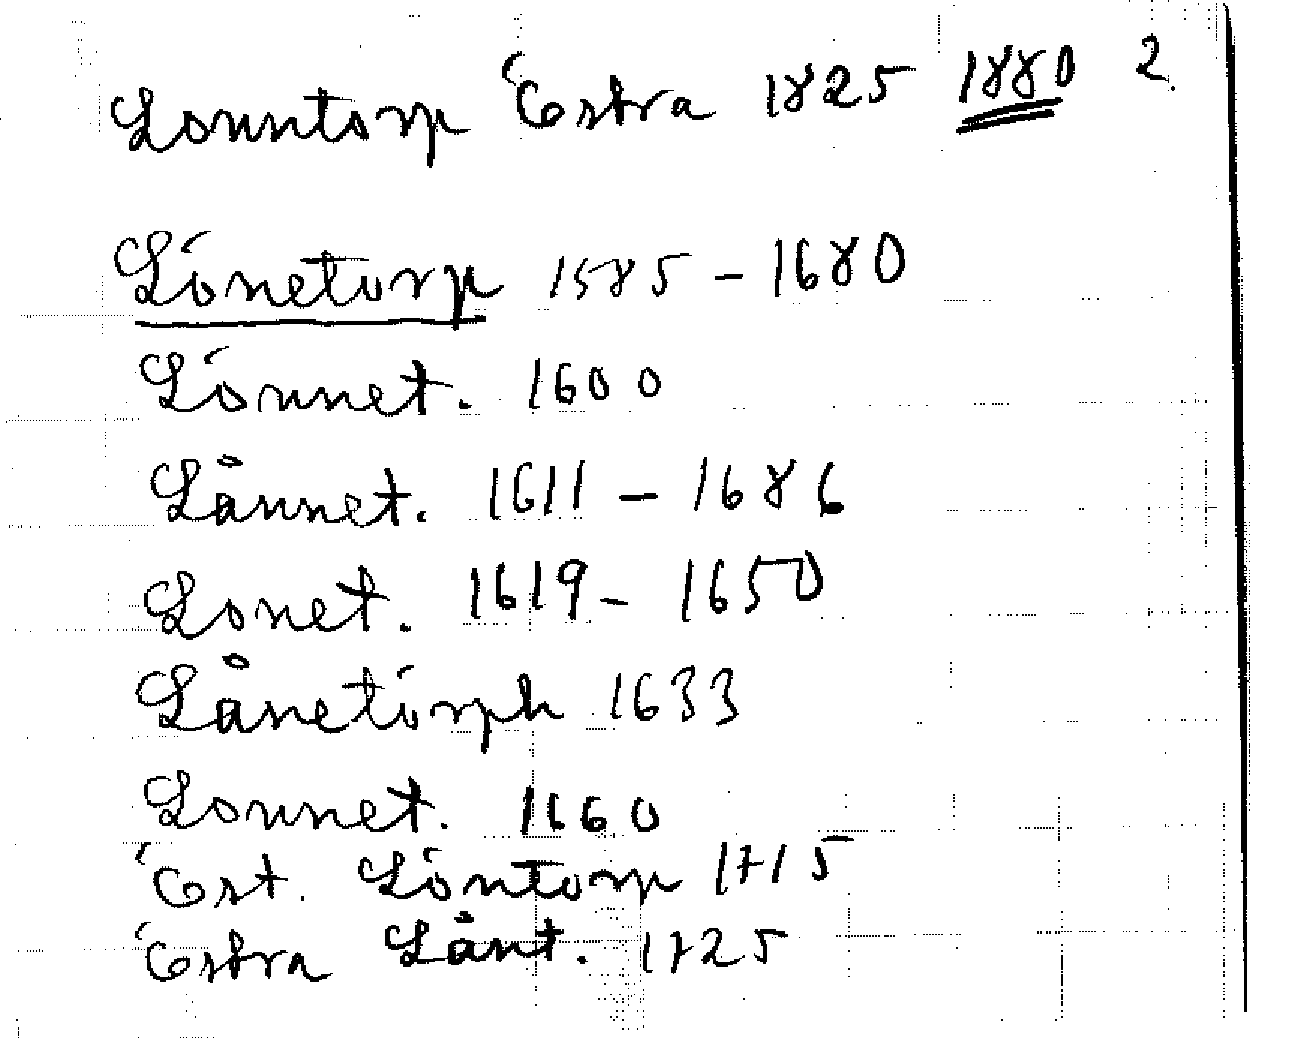 Lonntorp Östra 1825 1880 2
Lönetorp 1585 - 1680
Lönnet. 1600
Lånnet. 1611 - 1686
Lonet. 1619 - 1650
Lånetörph 1633
Lonnet. 1660
Öst. Löntorp 1715
Östra Lånt. 1725